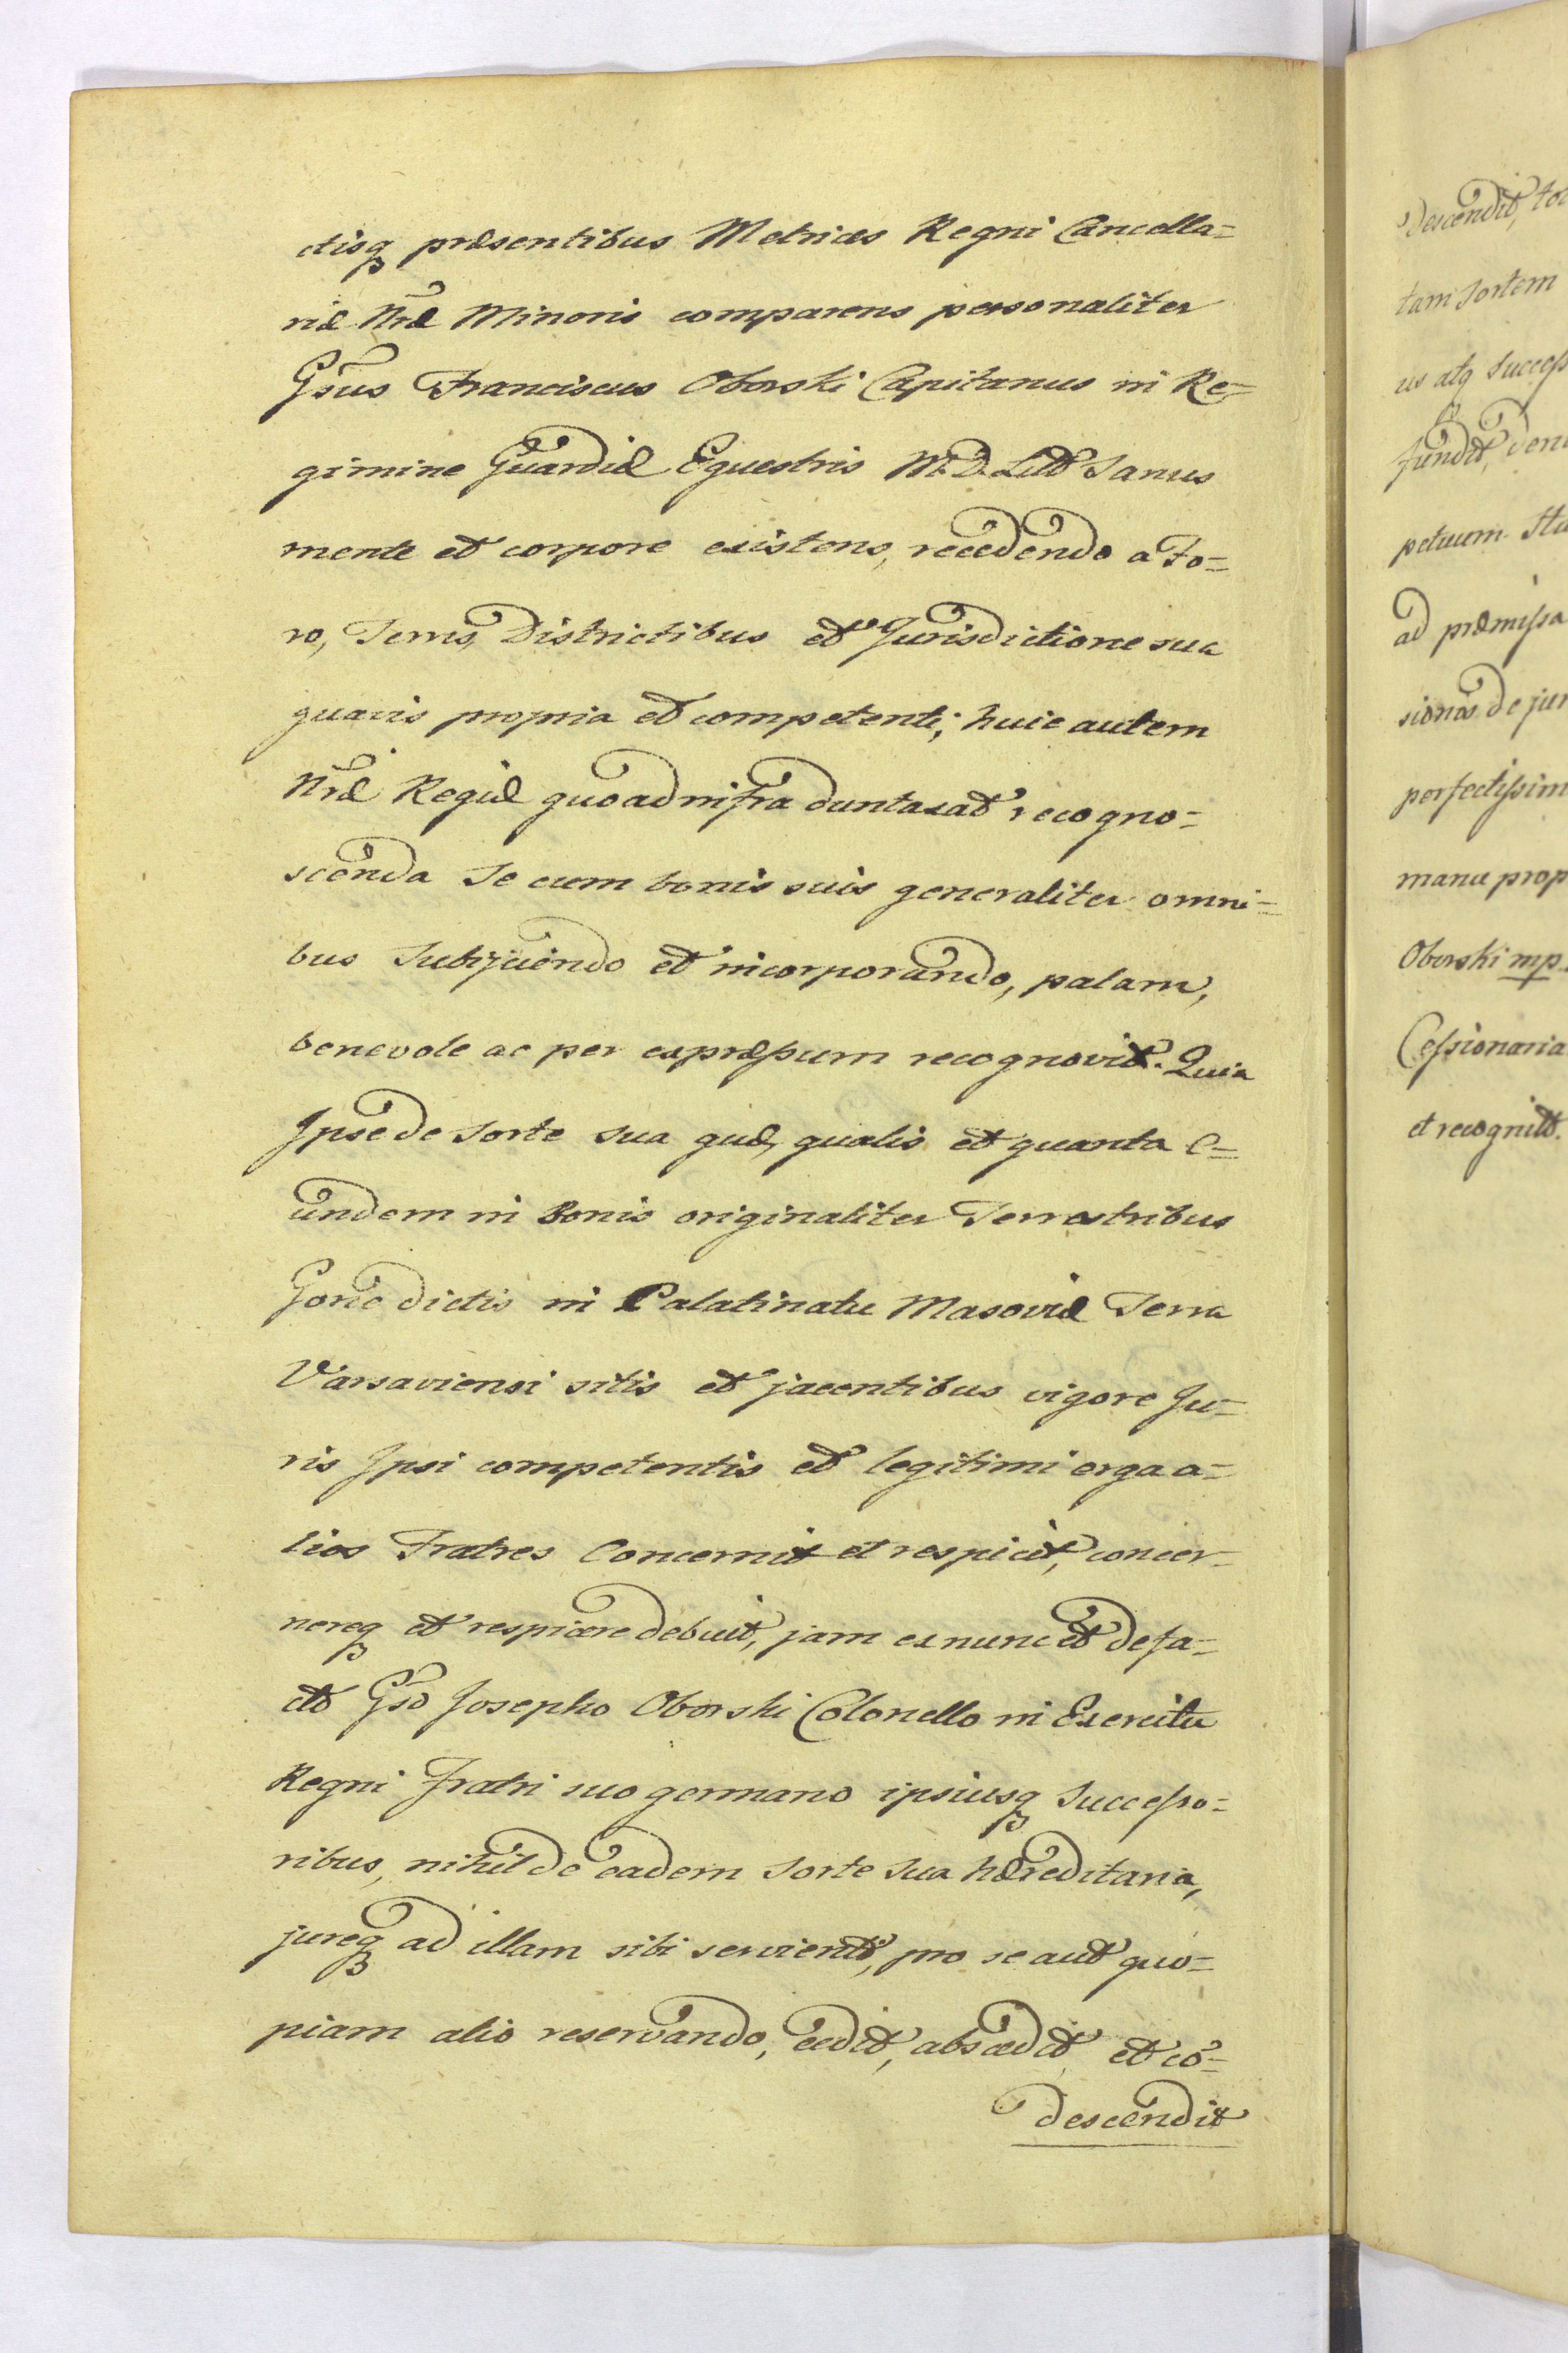 ctisq præsentibus Metrices Regni Cancella=
riæ Nræ Minoris comparens personaliter
Gsus Franciscus Oborski Capitanus in Re=
gimine Guardiæ Equestris M. D. Litt Sanus
mente et corpore existens, recedendo a Fo=
ro, Terris, Districtibus et Jurisdictione sua
quavis propria et competenti; huic autem
Nræ Regiæ quoad infra duntaxat recogno=
scenda Se cum bonis suis generaliter omni=
bus Subijciendo et incorporando, palam,
benevole ac per expræssum recognovit. Quia
Ipse de Sorte sua quæ, qualis et quanta e=
undem in Bonis originaliter Terrestribus
Goric dictis in Palatinatu Masoviæ Terra
Varsaviensi sitis et jacentibus vigore Ju=
ris Ipsi competentis et legitimi erga a=
lios Fratres Concernit et respicit, concer=
nereq et respicere debuit, jam ex nunc et de fa=
cto Gso Josepho Oborski Colonello in Exercitu
Regni Fratri suo germano ipsiusq Successo=
ribus, nihil de eadem Sorte Sua hæreditaria,
jureq ad illam sibi servienti, pro se aut quo=
piam alio reservando, cedit, abscedit et co=
descendit
Descendit, to
tam Sortem
us atq Success
fundit, den
petuum. Stu
ad præmissa
siones de jur
perfectissim
manu prop
Oborski mp.
Cessionaria
et recognit.